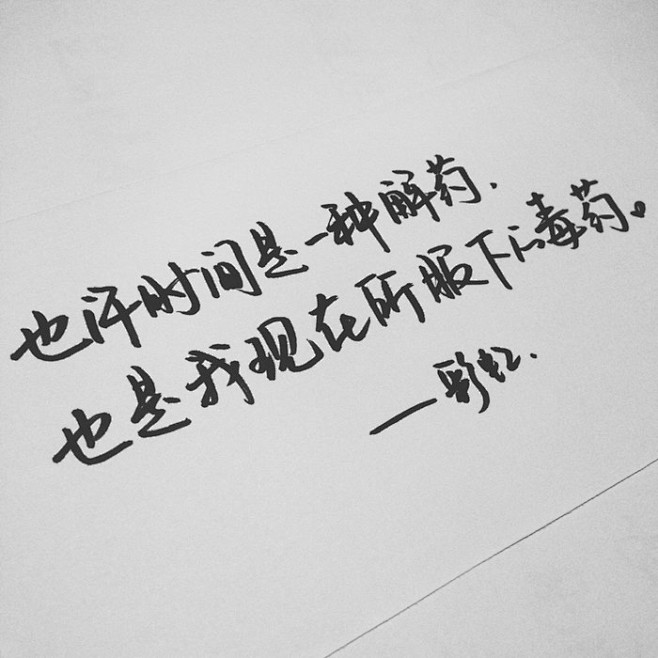 也许时间是一种解药.
也是我现在所服下的毒药。
—彩虹.